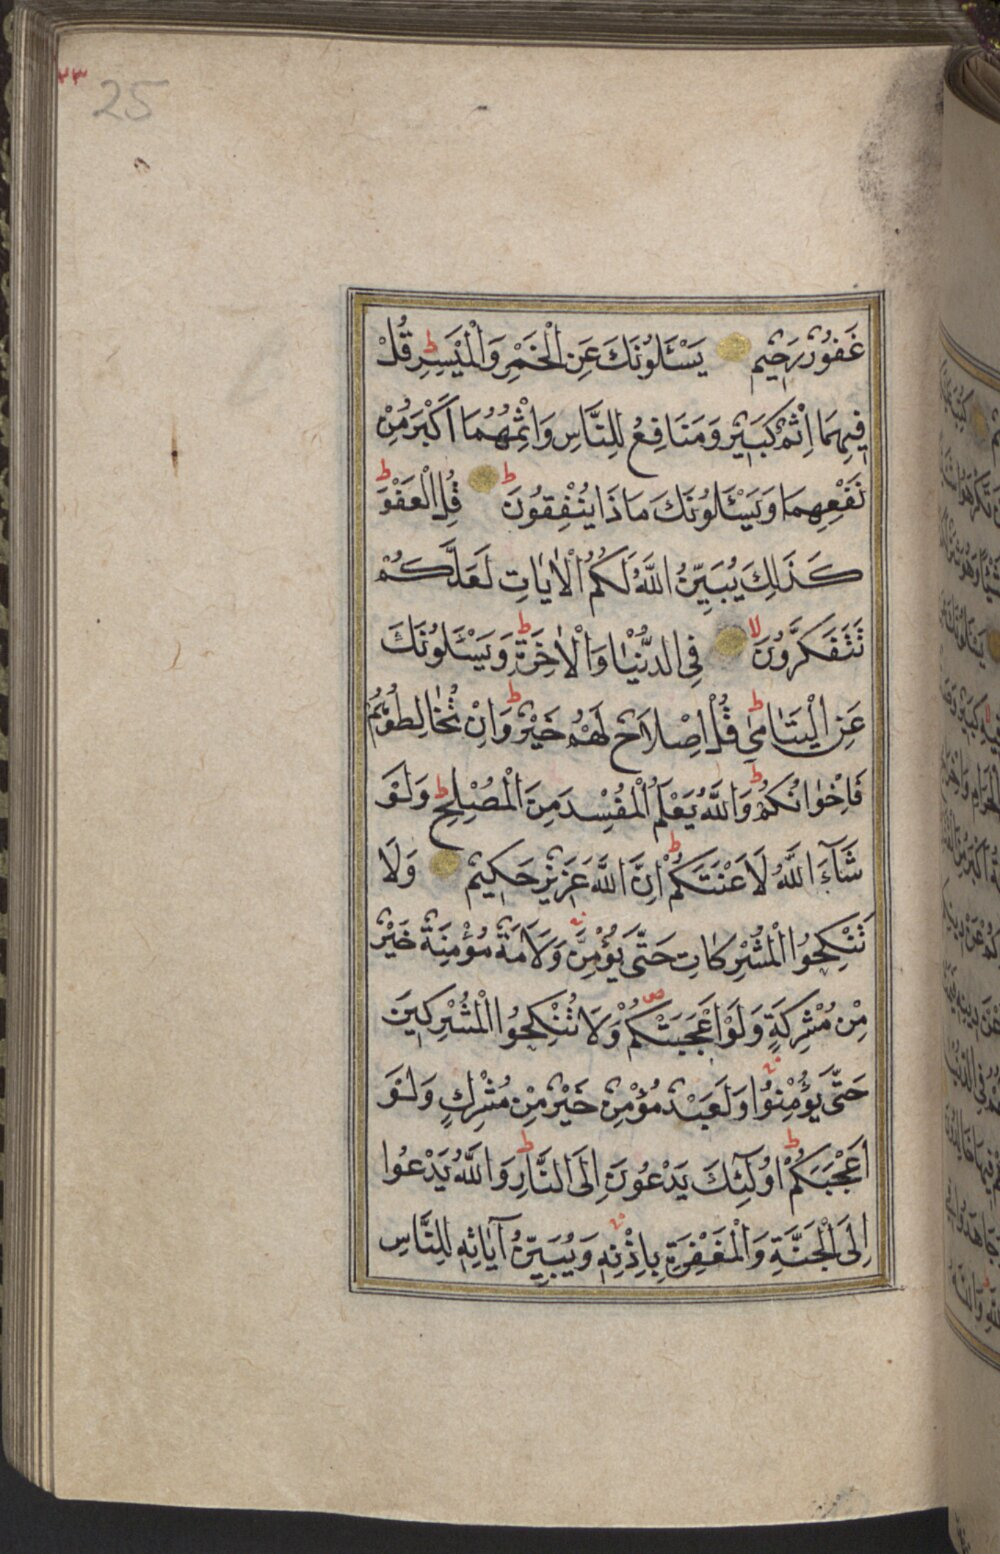 ٢٣
25
غَفُورٌ رَحِيمٌ يَسْـَٔلُونَكَ عَنِ الْخَمْرِ وَالْمَيْسِرِ ط قُلْ
فِيهِمَا اِثْمٌ كَبِيرٌ وَمَنَافِعُ لِلنَّاسِ وَاِثْمُهُمَا اَكْبَرُ مِنْ
نَفْعِهِمَا ط وَيَسْـَٔلُونَكَ مَاذَا يُنْفِقُونَ قُلِ الْعَفْوَ ط
كَذٰلِكَ يُبَيِّنُ اللّٰهُ لَكُمُ الْاٰيَاتِ لَعَلَّكُمْ
تَتَفَكَّرُونَ لا فِي الدُّنْيَا وَالْاٰخِرَةِ ط وَيَسْـَٔلُونَكَ
عَنِ الْيَتَامٰى ط قُلْ اِصْلَاحٌ لَهُمْ خَيْرٌ ط وَاِنْ تُخَالِطُوهُمْ
فَاِخْوَانُكُمْ ط وَاللّٰهُ يَعْلَمُ الْمُفْسِدَ مِنَ الْمُصْلِحِ ط وَلَوْ
شَآءَ اللّٰهُ لَاَعْنَتَكُمْ ط اِنَّ اللّٰهَ عَزِيزٌ حَكِيمٌ وَلَا
تَنْكِحُوا الْمُشْرِكَاتِ حَتّٰى يُؤْمِنَّ وَلَاَمَةٌ مُؤْمِنَةٌ خَيْرٌ
مِنْ مُشْرِكَةٍ وَلَوْ اَعْجَبَتْكُمْ وَلَا تُنْكِحُوا الْمُشْرِكِينَ
حَتّٰى يُؤْمِنُوا وَلَعَبْدٌ مُؤْمِنٌ خَيْرٌ مِنْ مُشْرِكٍ وَلَوْ
اَعْجَبَكُمْ ط اُولٰٓئِكَ يَدْعُونَ اِلَى النَّارِ ط وَاللّٰهُ يَدْعُوا
اِلَى الْجَنَّةِ وَالْمَغْفِرَةِ بِاِذْنِهِ وَيُبَيِّنُ اٰيَاتِهِ لِلنَّاسِ